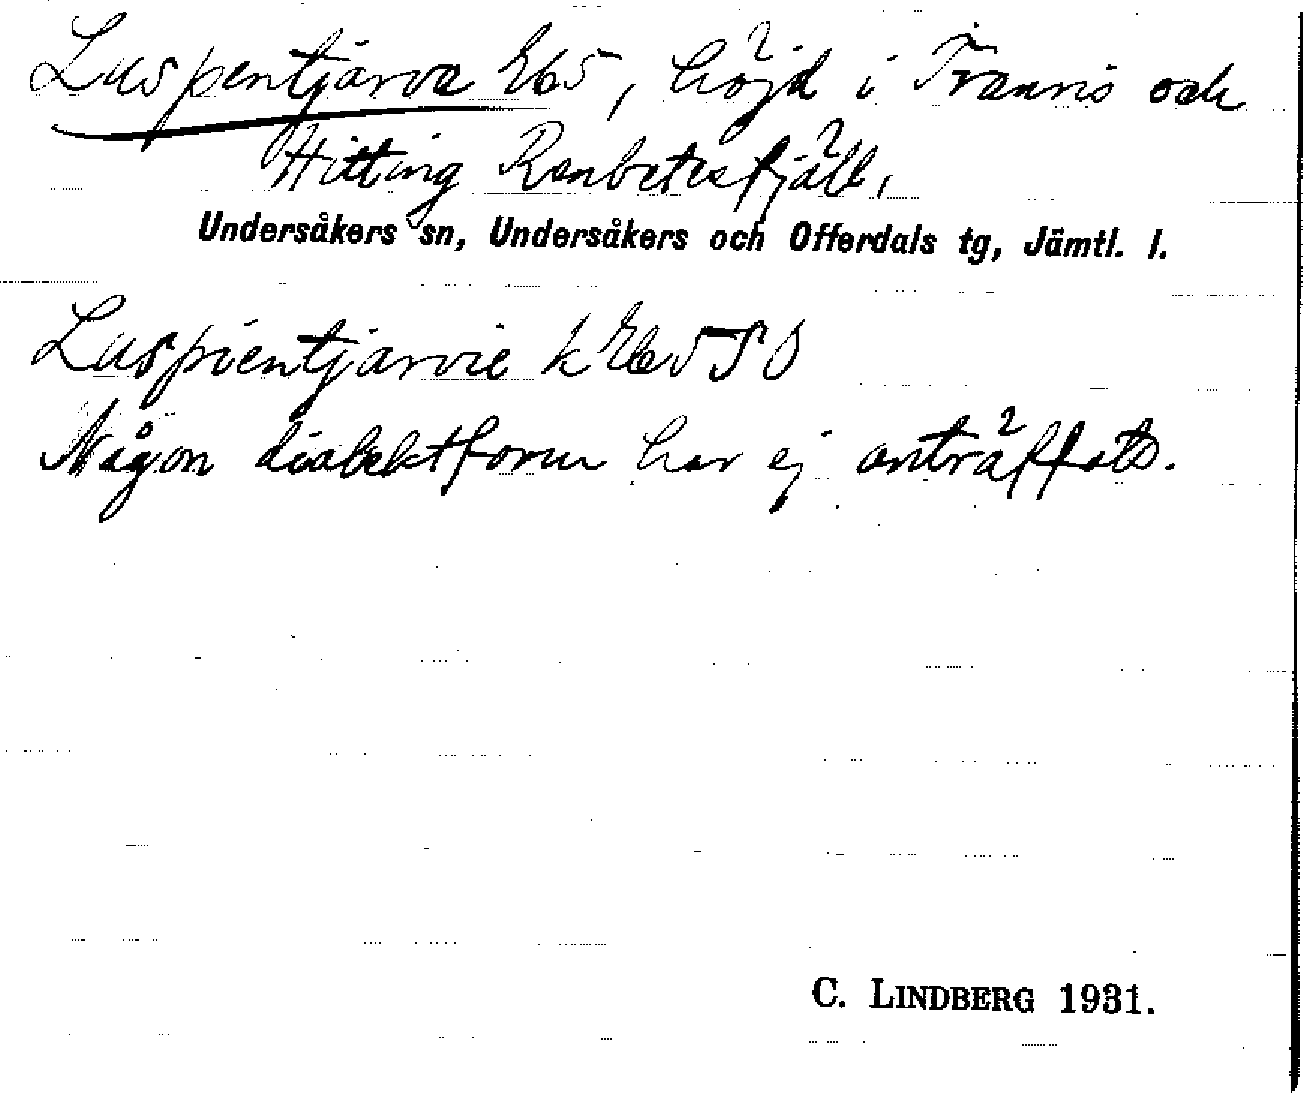 Luspentjärva Eb5, höjd i Tranris och
Hitting Renbetesfjäll,
Undersåkers sn, Undersåkers och Offerdals tg, Jämtl. l.
Luspientjarvie k Eb5
Någon dialektform har ej anträffats.
C. LINDBERG 1931.